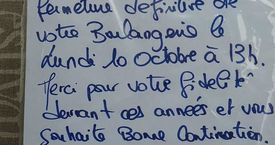 fermeture définitive de
votre Boulangerie le
Lundi 10 Octobre à 13h.
Merci pour votre fidélité
devant ces années et vous
souhaite Bonne Continuation.